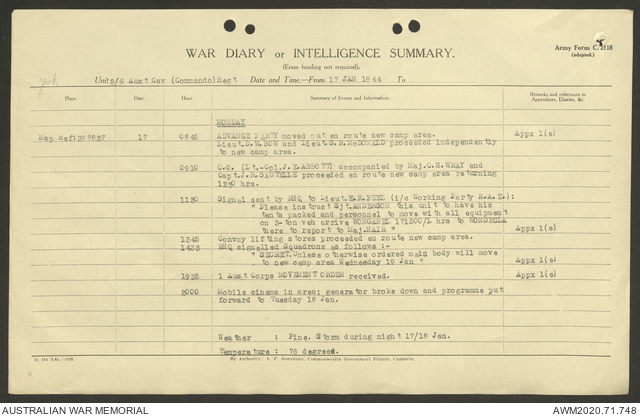 Army Form C. 2118
(adapted.)
WAR DIARY or INTELLIGENCE SUMMARY.
(Erase heading not required).
Unit 2/6 Aust Cav (Commando) Regt Date and Time.—From 17 JAN 1944 To
Place. Date. Hour. Summary of Events and Information. Remarks and references to Appendices, Diaries, &c.
MONDAY
Map Ref: 387837 17 0845 ADVANCE PARTY moved out en route new camp area. Appx 1(e)
Lieut.D.W.BOW and Lieut.S.R.McDONALD proceeded independently
to new camp area.
0910 C.O. (Lt.-Col.J.E.ABBOTT) accompanied by Maj.C.H.WRAY and
Capt.J.R.SAUTELLE proceeded en route new camp area returning
1230 hrs.
1130 Signal sent by RHQ to Lieut.E.R.PEEL (i/c Working Party R.A.E):
" Please instruct Sjt.ANDERSON this unit to have his
tents packed and personnel to move with all equipment
on 3-ton veh arrive WONGABEL 171500/L hrs to WONDECLA
there to report to Maj.HAIR " Appx 1(e)
1345 Convoy lifting stores proceeded en route new camp area.
1433 RHQ signalled Squadrons as follows :-
" SECRET.Unless otherwise ordered main body will move
to new camp area Wednesday 19 Jan " Appx 1(e)
1935 1 Aust Corps MOVEMENT ORDER received. Appx 1(e)
2000 Mobile cinema in area; generator broke down and programme put
forward to Tuesday 18 Jan.
Weather : Fine. Storm during night 17/18 Jan.
Temperature : 76 degrees.
By Authority: L. F. Johnston, Commonwealth Government Printer, Canberra.
AUSTRALIAN WAR MEMORIAL
AWM2020.71.748